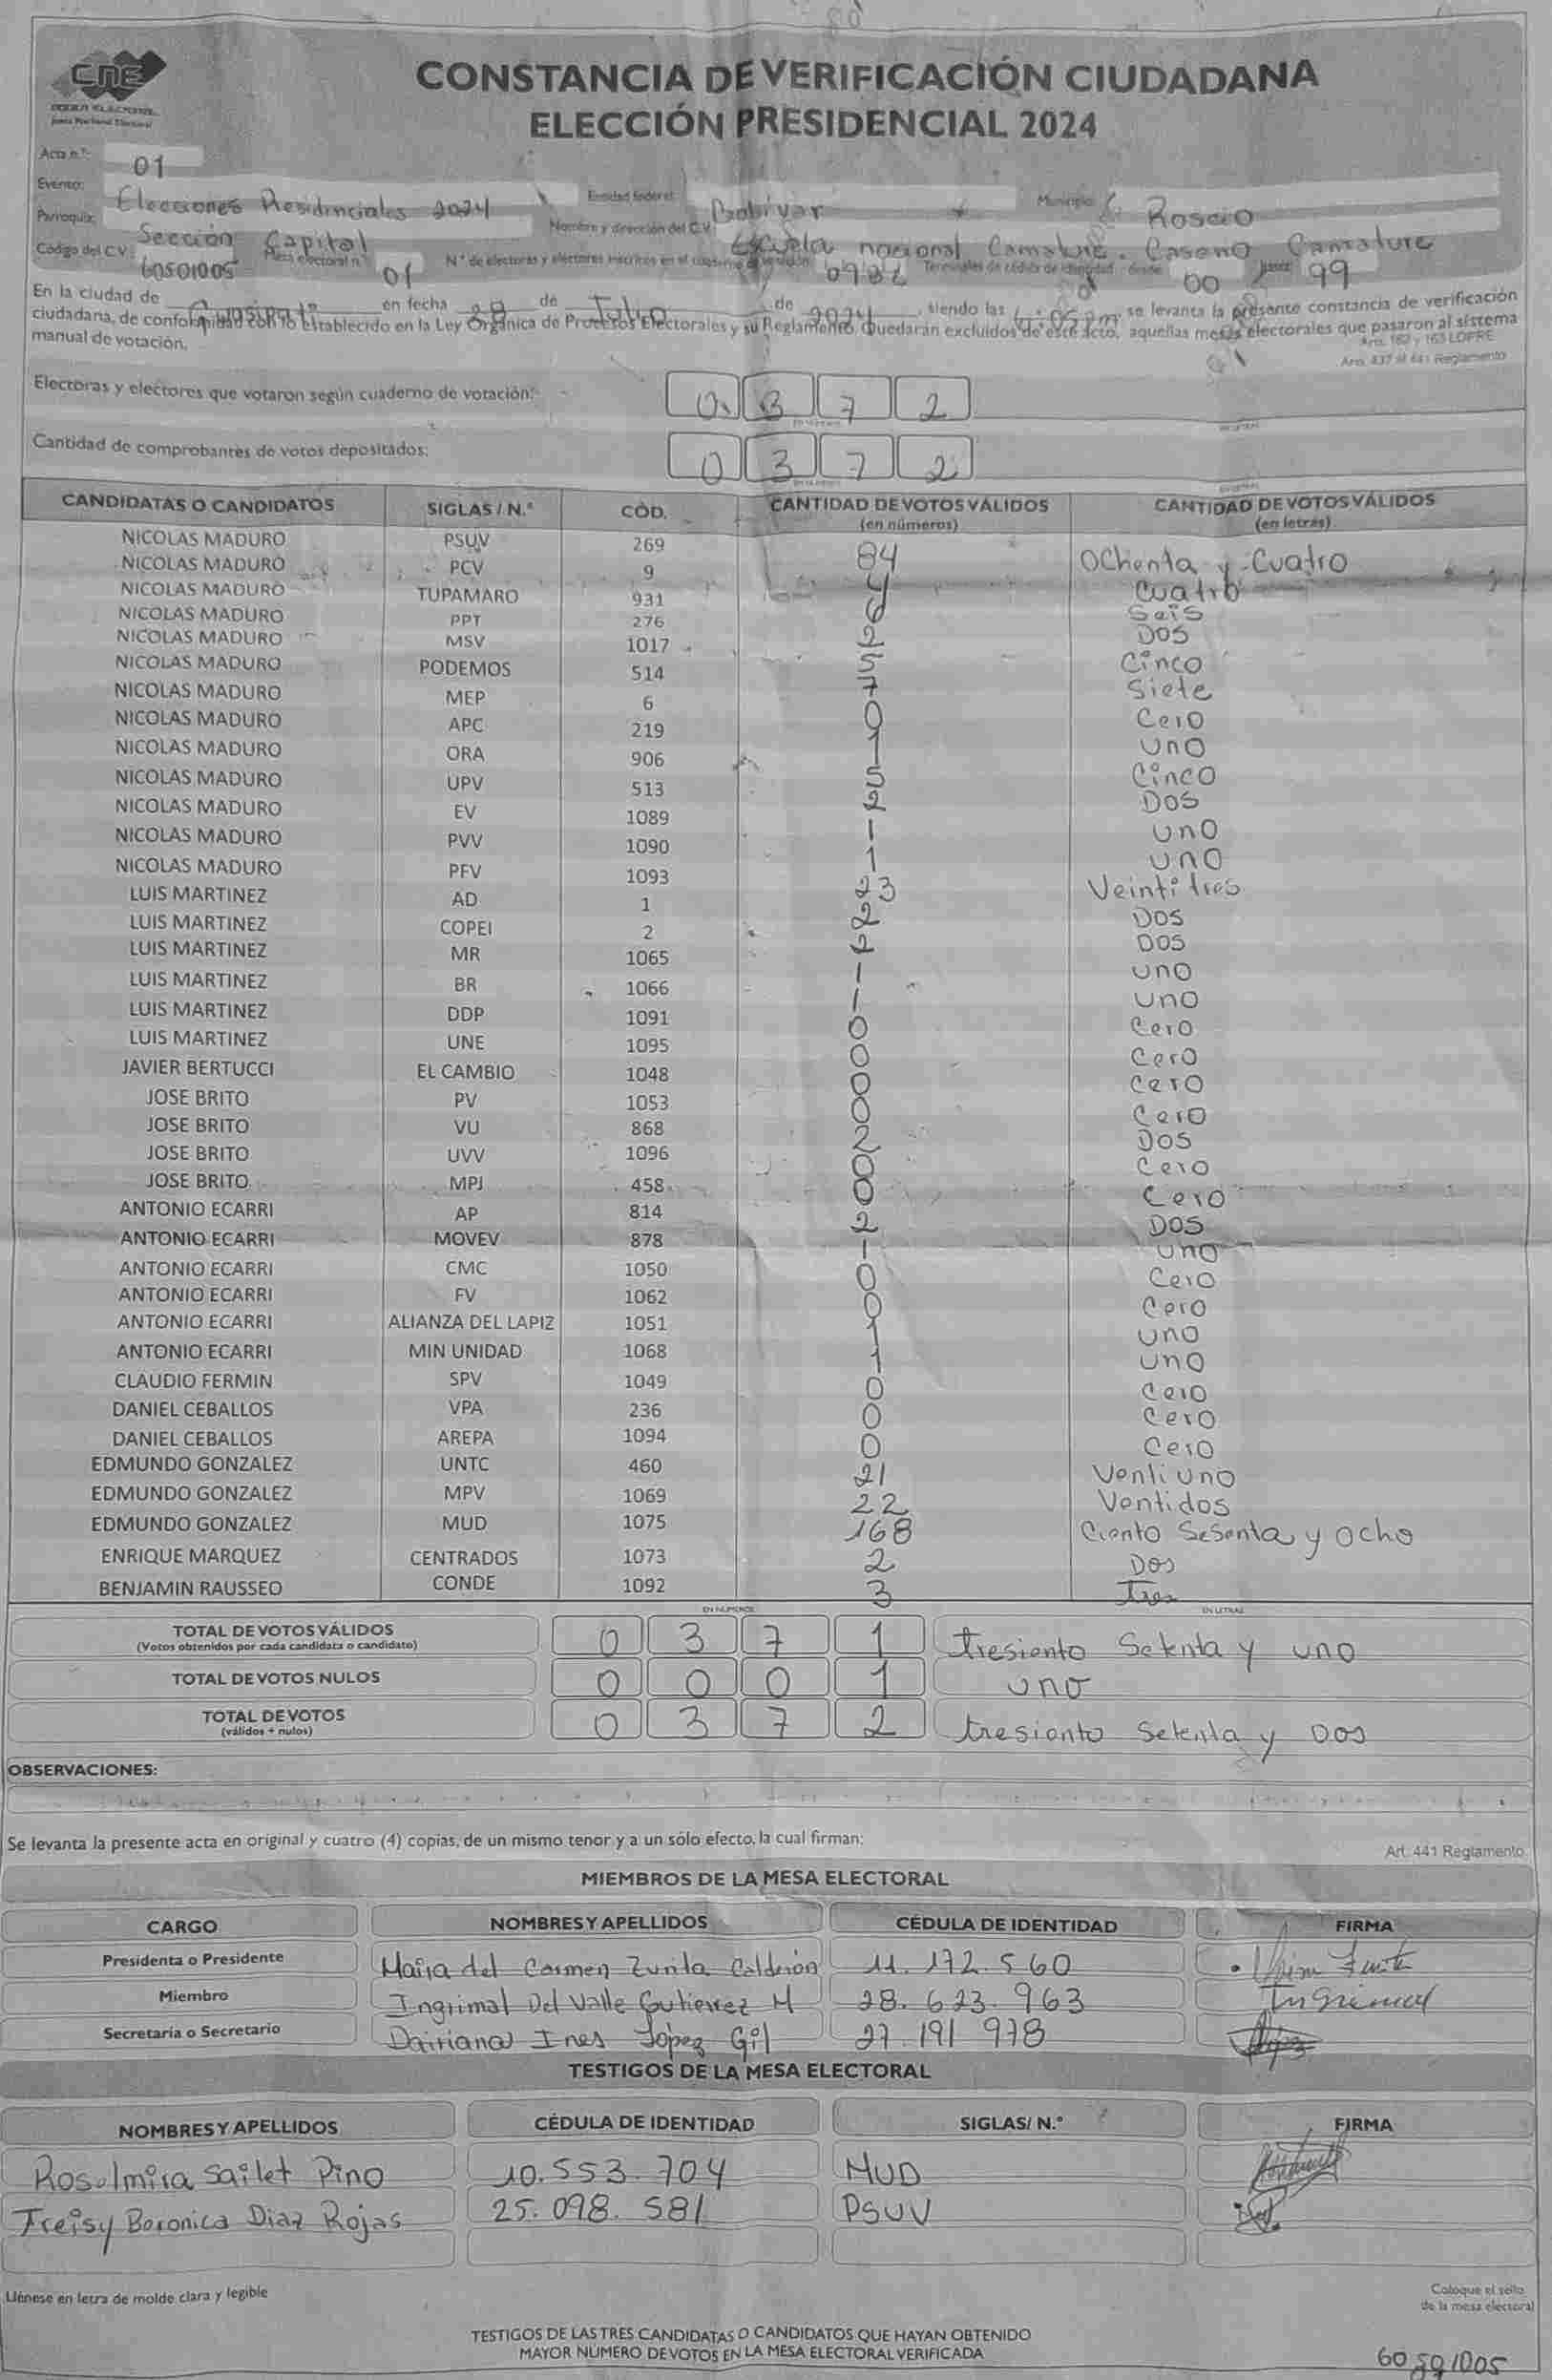 CNE
PODER ELECTORAL
Junta Nacional Electoral
CONSTANCIA DE VERIFICACIÓN CIUDADANA
ELECCIÓN PRESIDENCIAL 2024
Acta n.°: 01
Evento: Elecciones Presidenciales 2024 Entidad federal: Bolivar Municipio: Roscio
Parroquia: Sección Capital Nombre y dirección del C.V.: Escuela nacional Camature. Caserio Camature
Código del C.V.: 60501005 Mesa electoral n.° 01 N° de electoras y electores inscritos en el cuaderno de votación: Terminales de cédula de identidad desde 00 hasta 99
En la ciudad de Guasipati en fecha 28 de Julio de 2024, siendo las se levanta la presente constancia de verificación
ciudadana, de conformidad con lo establecido en la Ley Orgánica de Procesos Electorales y su Reglamento. Quedarán excluidos de este acto, aquellas mesas electorales que pasaron al sistema
manual de votación.
Arts. 162 y 163 LOPRE
Arts. 437 al 441 Reglamento
Electoras y electores que votaron según cuaderno de votación: 0 3 7 2
Cantidad de comprobantes de votos depositados: 0 3 7 2
CANDIDATAS O CANDIDATOS SIGLAS / N.° CÓD. CANTIDAD DE VOTOS VÁLIDOS (en números) CANTIDAD DE VOTOS VÁLIDOS (en letras)
NICOLAS MADURO PSUV 269 84 Ochenta y Cuatro
NICOLAS MADURO PCV 9 4 Cuatro
NICOLAS MADURO TUPAMARO 931 6 Seis
NICOLAS MADURO PPT 276 2 Dos
NICOLAS MADURO MSV 1017 5 Cinco
NICOLAS MADURO PODEMOS 514 7 Siete
NICOLAS MADURO MEP 6 0 Cero
NICOLAS MADURO APC 219 1 uno
NICOLAS MADURO ORA 906 5 Cinco
NICOLAS MADURO UPV 513 2 Dos
NICOLAS MADURO EV 1089 1 uno
NICOLAS MADURO PVV 1090 1 uno
NICOLAS MADURO PFV 1093 23 Veintitres
LUIS MARTINEZ AD 1 2 Dos
LUIS MARTINEZ COPEI 2 2 Dos
LUIS MARTINEZ MR 1065 1 uno
LUIS MARTINEZ BR 1066 1 uno
LUIS MARTINEZ DDP 1091 0 Cero
LUIS MARTINEZ UNE 1095 0 Cero
JAVIER BERTUCCI EL CAMBIO 1048 0 Cero
JOSE BRITO PV 1053 0 Cero
JOSE BRITO VU 868 2 Dos
JOSE BRITO UVV 1096 0 Cero
JOSE BRITO MPJ 458 0 Cero
ANTONIO ECARRI AP 814 2 Dos
ANTONIO ECARRI MOVEV 878 1 uno
ANTONIO ECARRI CMC 1050 0 Cero
ANTONIO ECARRI FV 1062 0 Cero
ANTONIO ECARRI ALIANZA DEL LAPIZ 1051 1 uno
ANTONIO ECARRI MIN UNIDAD 1068 1 uno
CLAUDIO FERMIN SPV 1049 0 Cero
DANIEL CEBALLOS VPA 236 0 Cero
DANIEL CEBALLOS AREPA 1094 0 Cero
EDMUNDO GONZALEZ UNTC 460 21 Ventiuno
EDMUNDO GONZALEZ MPV 1069 22 Ventidos
EDMUNDO GONZALEZ MUD 1075 168 Ciento Sesenta y ocho
ENRIQUE MARQUEZ CENTRADOS 1073 2 Dos
BENJAMIN RAUSSEO CONDE 1092 3 Tres
EN NÚMEROS EN LETRAS
TOTAL DE VOTOS VÁLIDOS 0 3 7 1 tresiento Setenta y uno
(Votos obtenidos por cada candidata o candidato)
TOTAL DE VOTOS NULOS 0 0 0 1 uno
TOTAL DE VOTOS 0 3 7 2 tresiento Setenta y Dos
(válidos + nulos)
OBSERVACIONES:
Se levanta la presente acta en original y cuatro (4) copias, de un mismo tenor y a un sólo efecto, la cual firman:
Art. 441 Reglamento
MIEMBROS DE LA MESA ELECTORAL
CARGO NOMBRES Y APELLIDOS CÉDULA DE IDENTIDAD FIRMA
Presidenta o Presidente Maira del Carmen Zurita Calderón 11.172.560
Miembro Ingrimal Del Valle Gutierrez M 28.623.963 Ingrimal
Secretaria o Secretario Dairiana Ines López Gil 27.191 978
TESTIGOS DE LA MESA ELECTORAL
NOMBRES Y APELLIDOS CÉDULA DE IDENTIDAD SIGLAS/ N.° FIRMA
Roselmira Sailet Pino 10.553.704 MUD
Freisy Boronica Diaz Rojas 25.098.581 PSUV
Llénese en letra de molde clara y legible
Coloque el sello
de la mesa electoral
TESTIGOS DE LAS TRES CANDIDATAS O CANDIDATOS QUE HAYAN OBTENIDO
MAYOR NÚMERO DE VOTOS EN LA MESA ELECTORAL VERIFICADA
60501005